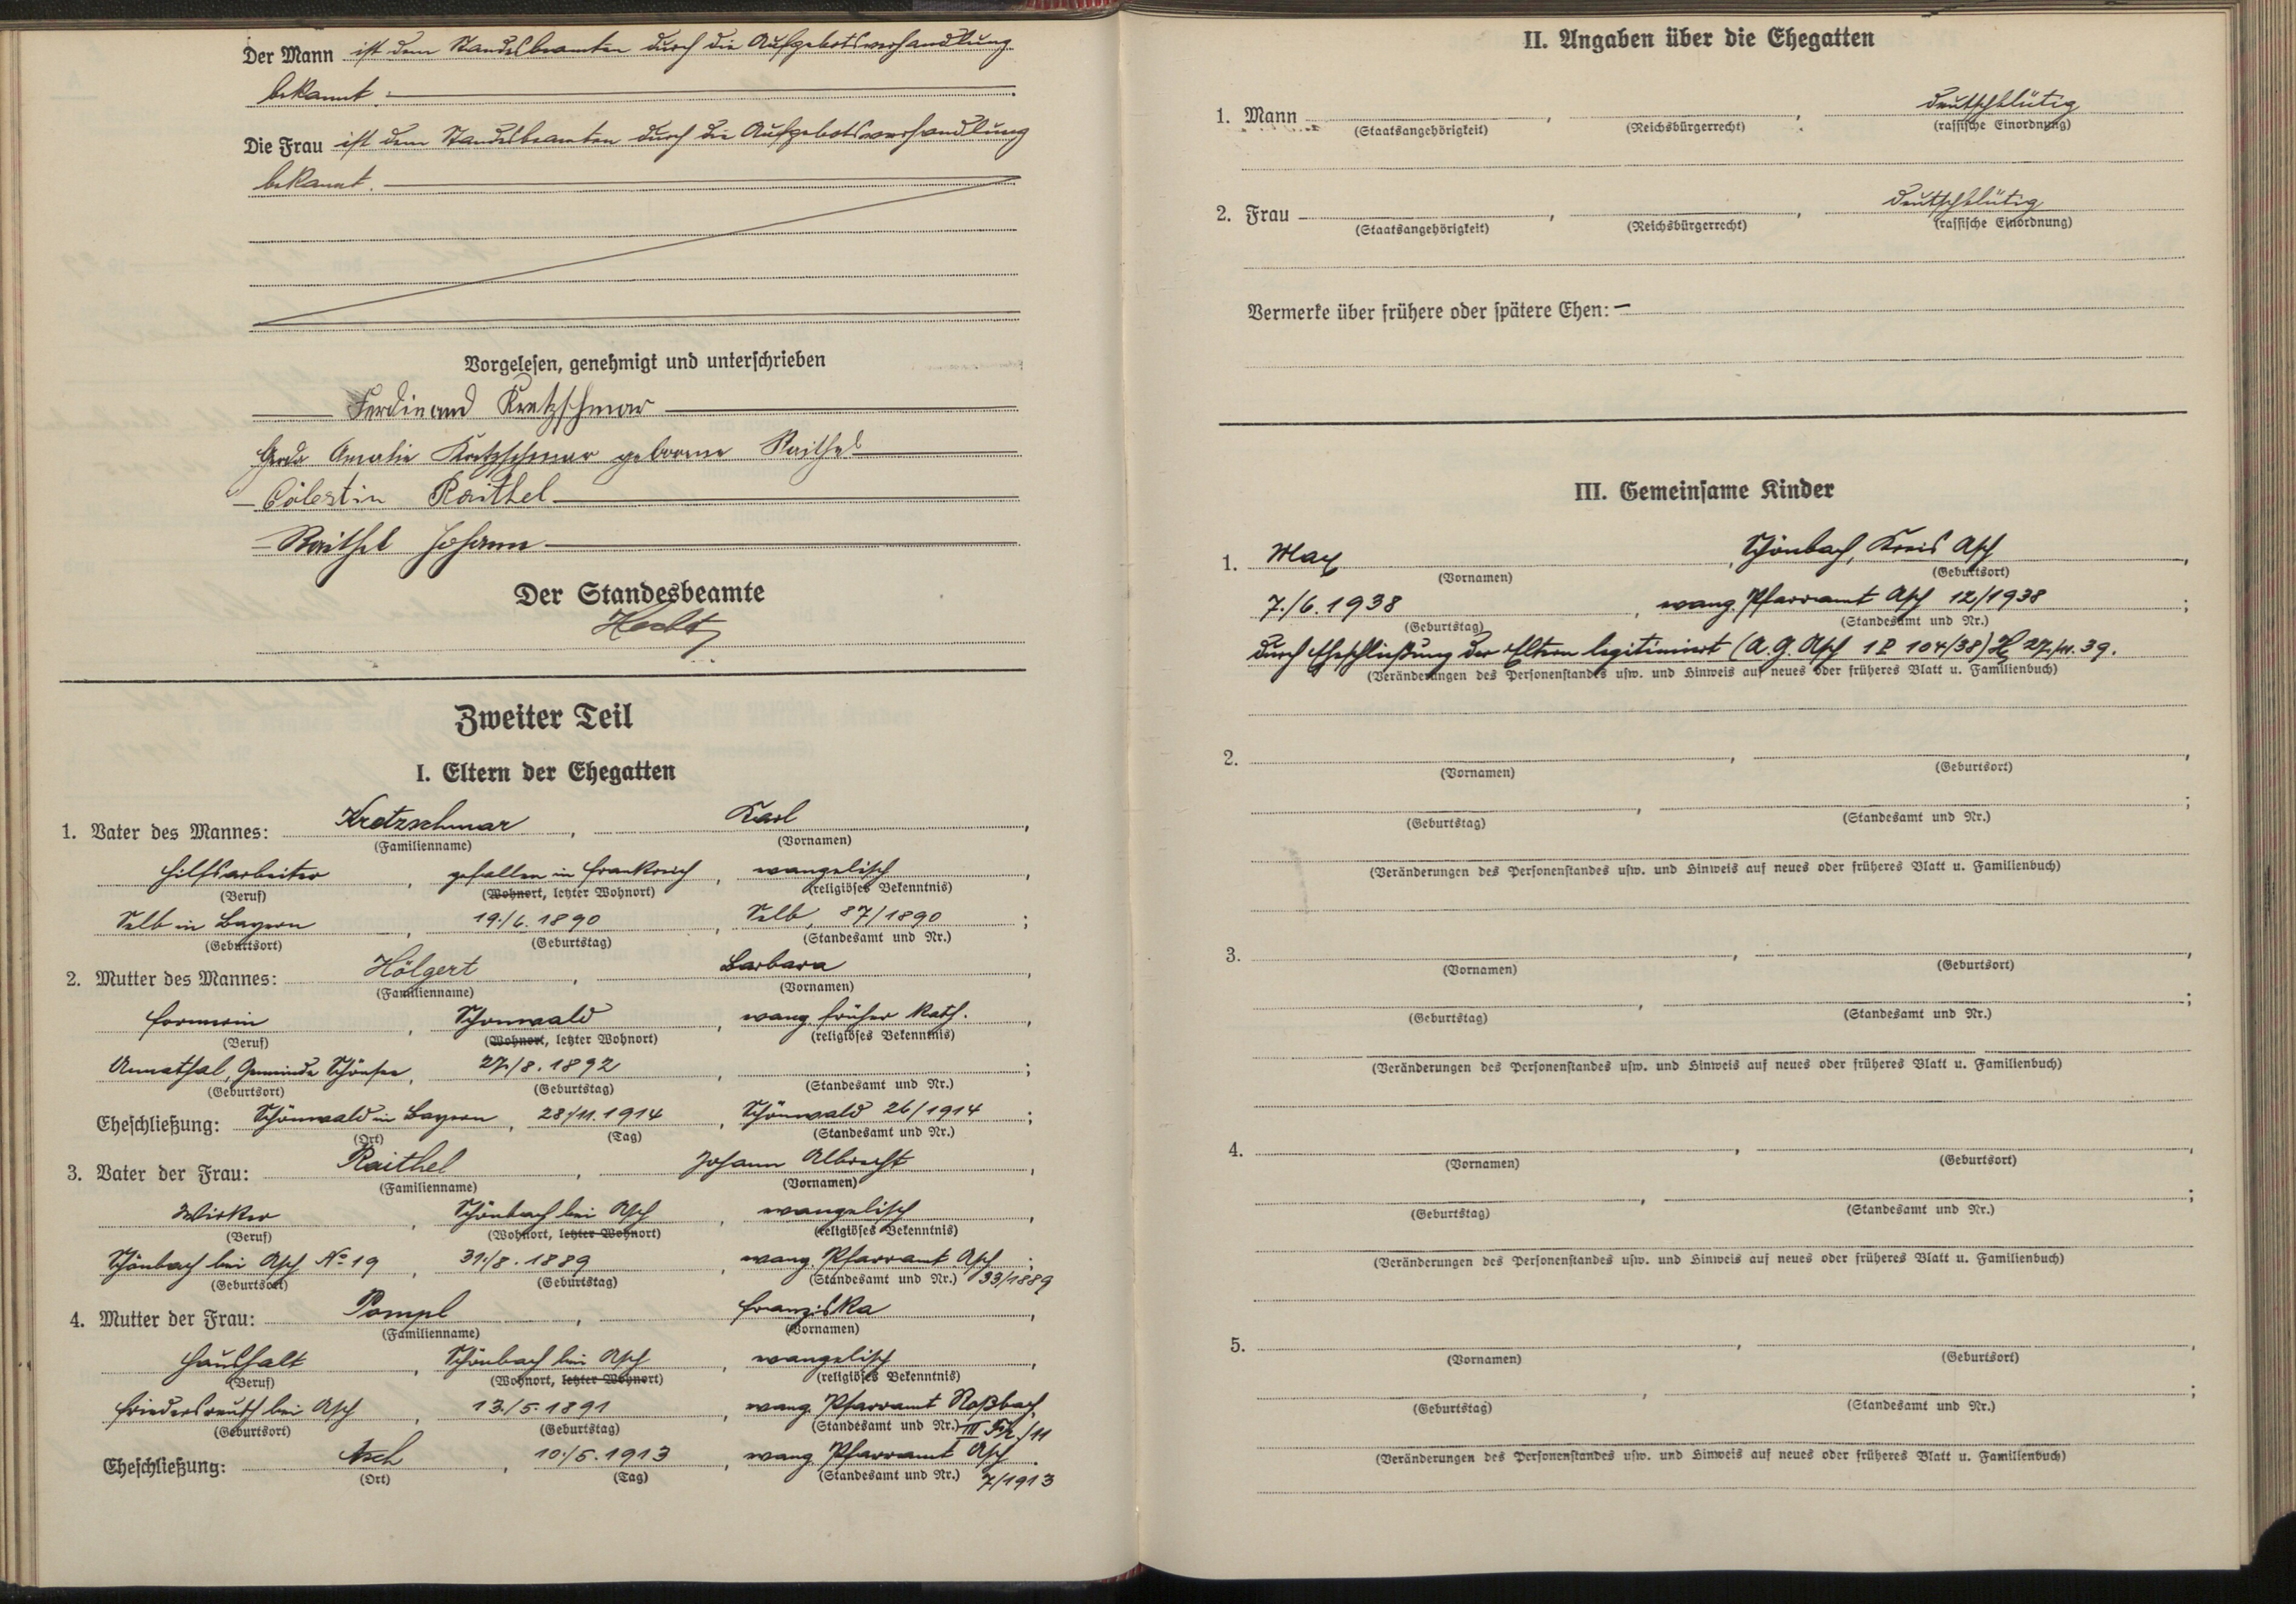 Der Mann ist dem Standesbeamten durch die Aufgebotsverhandlung
bekannt.
Die Frau ist dem Standesbeamten durch die Aufgebotsverhandlung
bekannt.
Vorgelesen, genehmigt und unterschrieben
Ferdinand Kretzschmar
Gerda Amalie Kretzschmar geborene Raithel
Cölestin Raithel
Raithel Johann
Der Standesbeamte
Hecht
Zweiter Teil
I. Eltern der Ehegatten
1. Vater des Mannes: Kretzschmar, Karl,
(Familienname) (Vornamen)
Hilfsarbeiter, gefallen in Frankreich, evangelisch,
(Beruf) (Wohnort, letzter Wohnort) (religiöses Bekenntnis)
Selb in Bayern, 19./6.1890, Selb, 87/1890;
(Geburtsort) (Geburtstag) (Standesamt und Nr.)
2. Mutter des Mannes: Hölgert, Barbara,
(Familienname) (Vornamen)
Formerin, Schönwald, evang. früher kath.,
(Beruf) (Wohnort, letzter Wohnort) (religiöses Bekenntnis)
Annathal, Gemeinde, 27./8.1892, ;
(Geburtsort) (Geburtstag) (Standesamt und Nr.)
Eheschließung: Schönwald in Bayern, 28./11.1914, Schönwald 26/1914;
(Ort) (Tag) (Standesamt und Nr.)
3. Vater der Frau: Raithel, Johann Albrecht,
(Familienname) (Vornamen)
Wirker, Schönbach bei Asch, evangelisch,
(Beruf) (Wohnort, letzter Wohnort) (religiöses Bekenntnis)
Schönbach bei Asch No 19, 31./8.1889, evang. Pfarramt Asch;
(Geburtsort) (Geburtstag) (Standesamt und Nr.) 33/1889
4. Mutter der Frau: Pompl, Franziska,
(Familienname) (Vornamen)
Haushalt, Schönbach bei Asch, evangelisch,
(Beruf) (Wohnort, letzter Wohnort) (religiöses Bekenntnis)
Friedersreuth bei Asch, 13./5.1891, evang. Pfarramt Roßbach,
(Geburtsort) (Geburtstag) (Standesamt und Nr.) III /11
Eheschließung: Asch, 10./5.1913, evang. Pfarramt Asch.
(Ort) (Tag) (Standesamt und Nr.) 7/1913
II. Angaben über die Ehegatten
1. Mann , , deutschblütig
(Staatsangehörigkeit) (Reichsbürgerrecht) (rassische Einordnung)
2. Frau , , deutschblütig
(Staatsangehörigkeit) (Reichsbürgerrecht) (rassische Einordnung)
Vermerke über frühere oder spätere Ehen: —
III. Gemeinsame Kinder
1. Max, Schönbach, Kreis Asch,
(Vornamen) (Geburtsort)
7./6.1938, evang. Pfarramt Asch 12/1938;
(Geburtstag) (Standesamt und Nr.)
durch Eheschließung der Eltern legitimiert (A.G. Asch 1 P 104/38) 39.
(Veränderungen des Personenstandes usw. und Hinweis auf neues oder früheres Blatt u. Familienbuch)
2. , ,
(Vornamen) (Geburtsort)
, ;
(Geburtstag) (Standesamt und Nr.)
(Veränderungen des Personenstandes usw. und Hinweis auf neues oder früheres Blatt u. Familienbuch)
3. , ,
(Vornamen) (Geburtsort)
, ;
(Geburtstag) (Standesamt und Nr.)
(Veränderungen des Personenstandes usw. und Hinweis auf neues oder früheres Blatt u. Familienbuch)
4. , ,
(Vornamen) (Geburtsort)
, ;
(Geburtstag) (Standesamt und Nr.)
(Veränderungen des Personenstandes usw. und Hinweis auf neues oder früheres Blatt u. Familienbuch)
5. , ,
(Vornamen) (Geburtsort)
, ;
(Geburtstag) (Standesamt und Nr.)
(Veränderungen des Personenstandes usw. und Hinweis auf neues oder früheres Blatt u. Familienbuch)